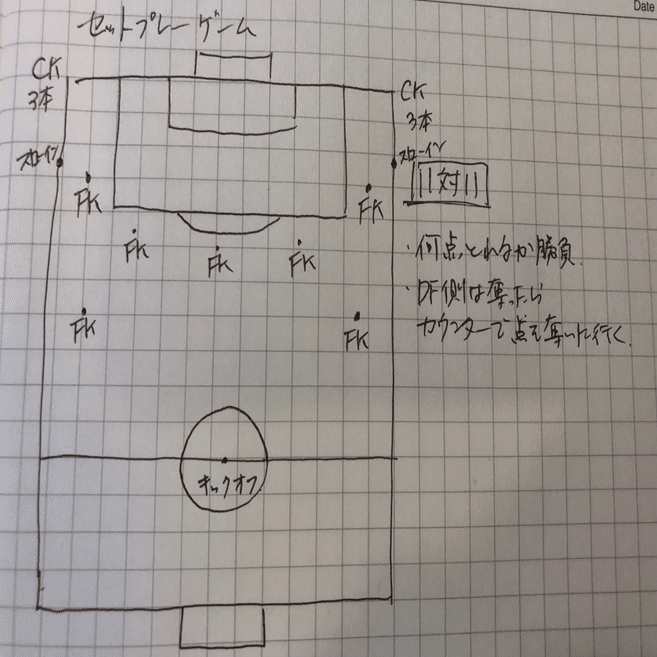 Date
セットプレーゲーム
CK
3本
CK
3本
スローイン
スローイン
11対11
FK
FK
FK
FK
FK
・何点とれるか勝負
・DF側は奪ったら
カウンターで点を奪いに行く。
FK
FK
キックオフ